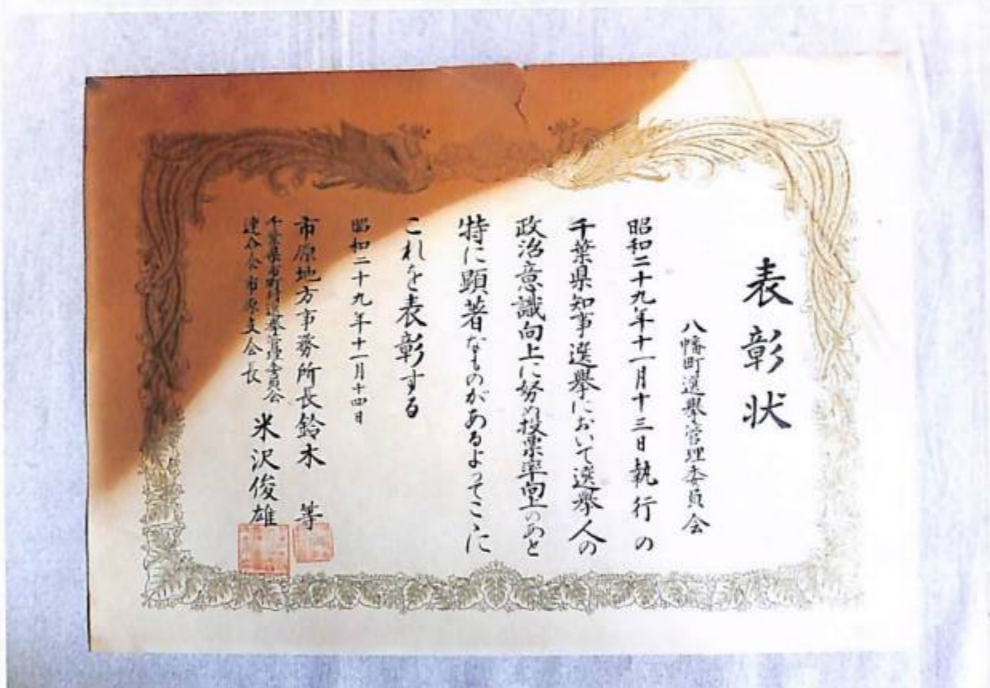 表彰状
八幡町選挙管理委員会
昭和二十九年十一月十三日執行の
千葉県知事選挙において選挙人の
政治意識向上に努め投票率向上のあと
特に顕著なものがあるよってここに
これを表彰する
昭和二十九年十一月十四日
市原地方事務所長鈴木 等
千葉県市町村選挙管理委員会
連合会市原支会長 米沢俊雄